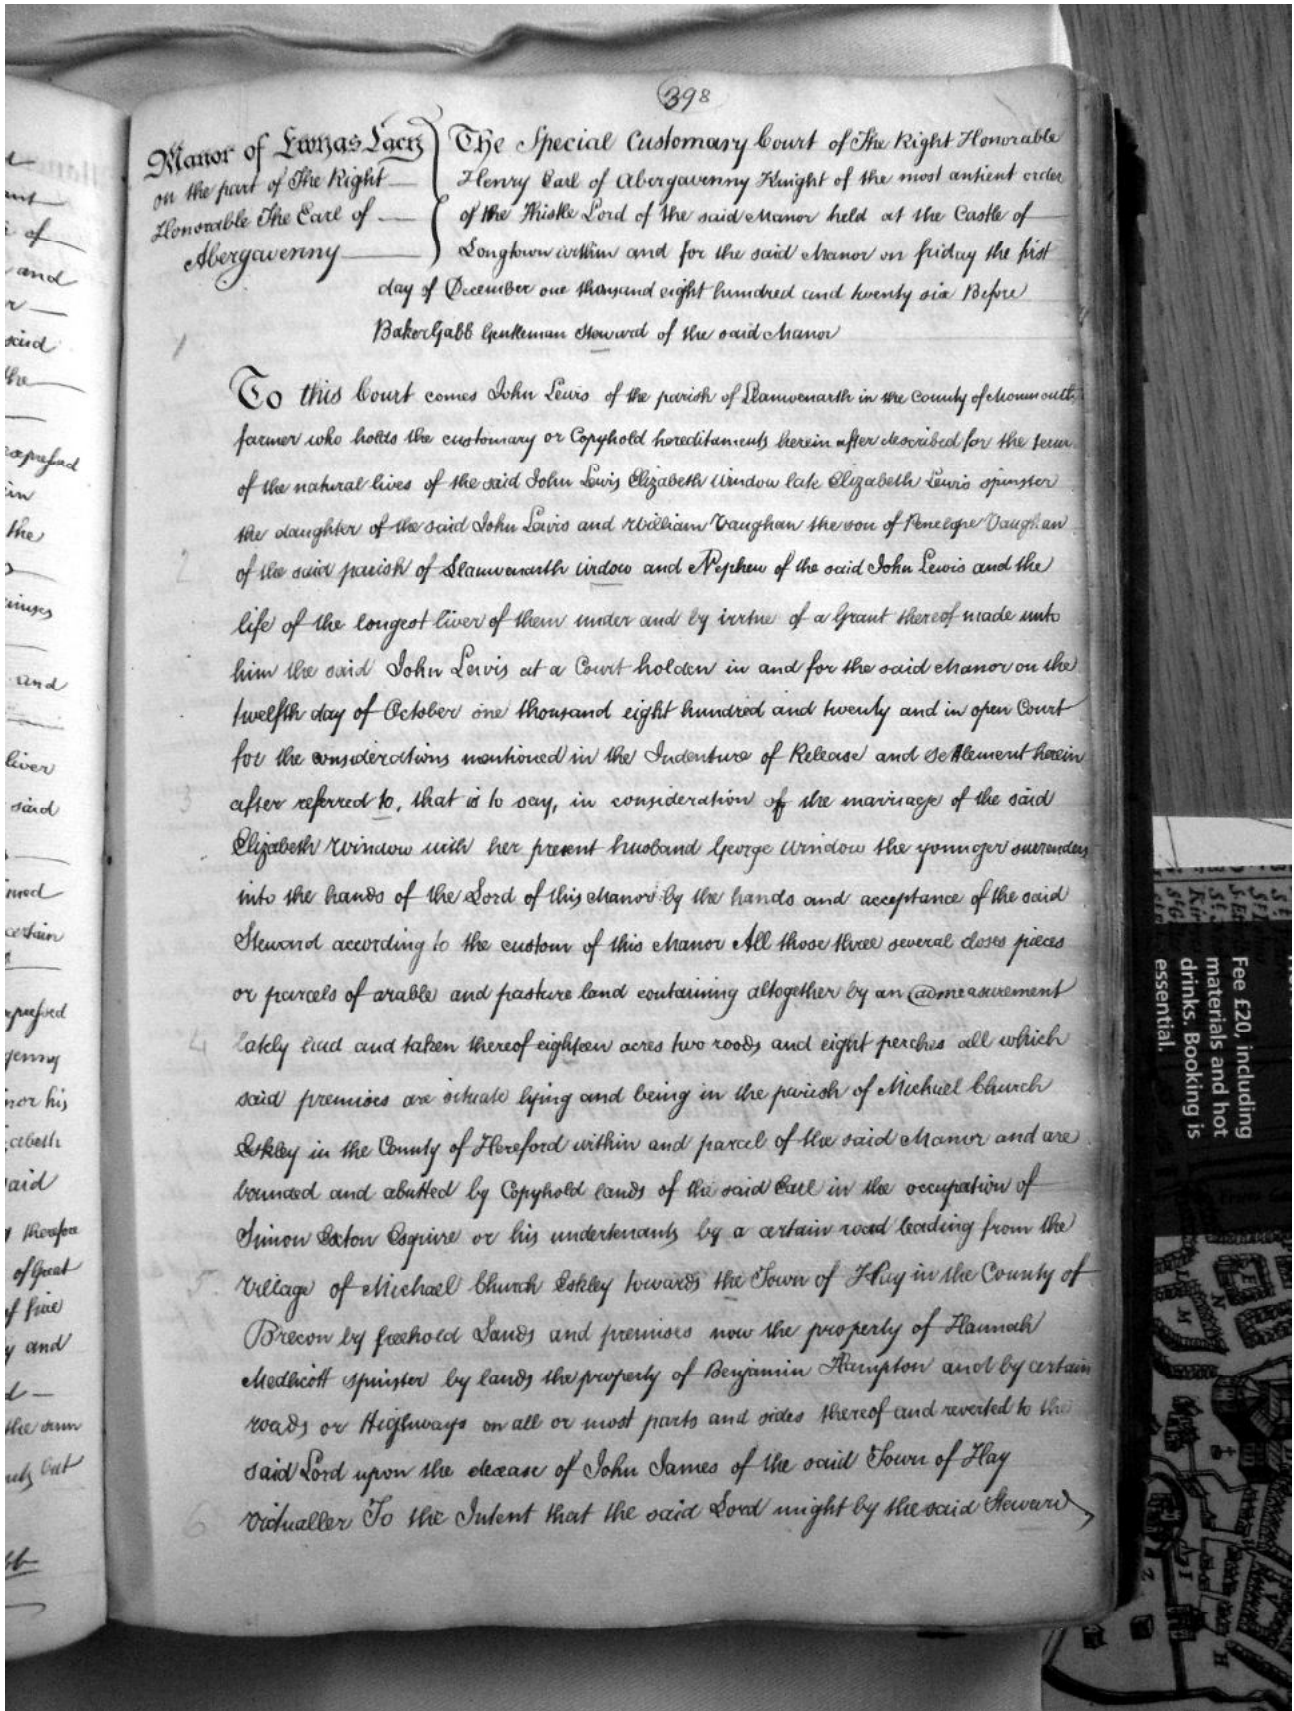 398
Manor of Ewyas Lacy
on the part of The Right
Honorable The Earl of
Abergavenny
The Special Customary Court of The Right Honorable
Henry Earl of Abergavenny Knight of the most antient order
of the Thistle Lord of the said Manor held at the Castle of
Longtown within and for the said Manor on friday the first
day of December one thousand eight hundred and twenty six Before
Baker Gabb Gentleman Steward of the said Manor
1
To this Court comes John Lewis of the parish of Llanwenarth in the County of Monmouth
farmer who holds the customary or Copyhold hereditaments herein after described for the term
of the natural lives of the said John Lewis Elizabeth Window late Elizabeth Lewis spinster
the daughter of the said John Lewis and William Vaughan the son of Penelope Vaughan
2
of the said parish of Llanwenarth widow and Nephew of the said John Lewis and the
life of the longest liver of them under and by virtue of a Grant thereof made unto
him the said John Lewis at a Court holden in and for the said Manor on the
twelfth day of October one thousand eight hundred and twenty and in open Court
for the considerations mentioned in the Indenture of Release and settlement herein
3
after referred to, that is to say, in consideration of the marriage of the said
Elizabeth Window with her present husband George Window the younger surrenders
into the hands of the Lord of this Manor by the hands and acceptance of the said
Steward according to the custom of this Manor All those three several closes pieces
or parcels of arable and pasture land containing altogether by an admeasurement
4
lately had and taken thereof eighteen acres two roods and eight perches all which
said premises are situate lying and being in the parish of Michael Church
Eskley in the County of Hereford within and parcel of the said Manor and are
bounded and abutted by Copyhold lands of the said Earl in the occupation of
Simon Exton Esquire or his undertenants by a certain road leading from the
5
Village of Michael Church Eskley towards the Town of Hay in the County of
Brecon by freehold Lands and premises now the property of Hannah
Medlicott spinster by lands the property of Benjamin Hampton and by certain
roads or Highways on all or most parts and sides thereof and reverted to the
said Lord upon the decease of John James of the said Town of Hay
6
Victualler To the Intent that the said Lord might by the said Steward
and
said
the
the
and
liver
said
certain
said
therefore
and
Fee £20, including
materials and hot
drinks. Booking is
essential.